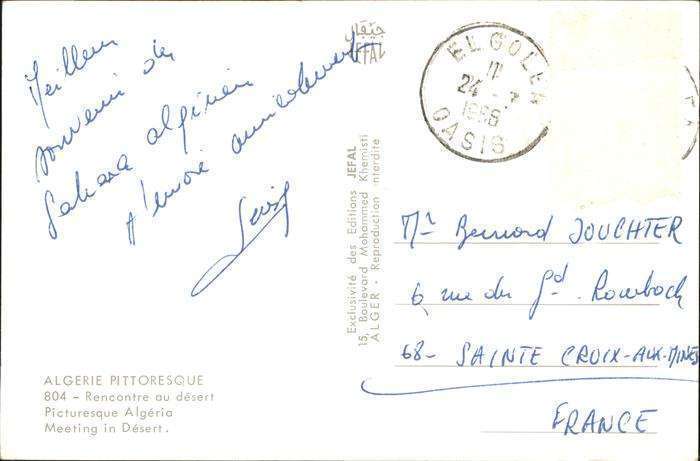 Meilleur
souvenir du
Sahara algérien
t'envoie amicalement
جيفال
JEFAL
EL GOLEA
11
24 - 7
1966
OASIS
Exclusivité des Editions JEFAL
15, Boulevard Mohammed Khemisti
ALGER - Reproduction interdite
Mr Bernard JOUCHTER
6 rue du Gd. Rombach
68 - SAINTE CROIX-AUX-MINES
FRANCE
ALGERIE PITTORESQUE
804 - Rencontre au désert
Picturesque Algéria
Meeting in Désert.